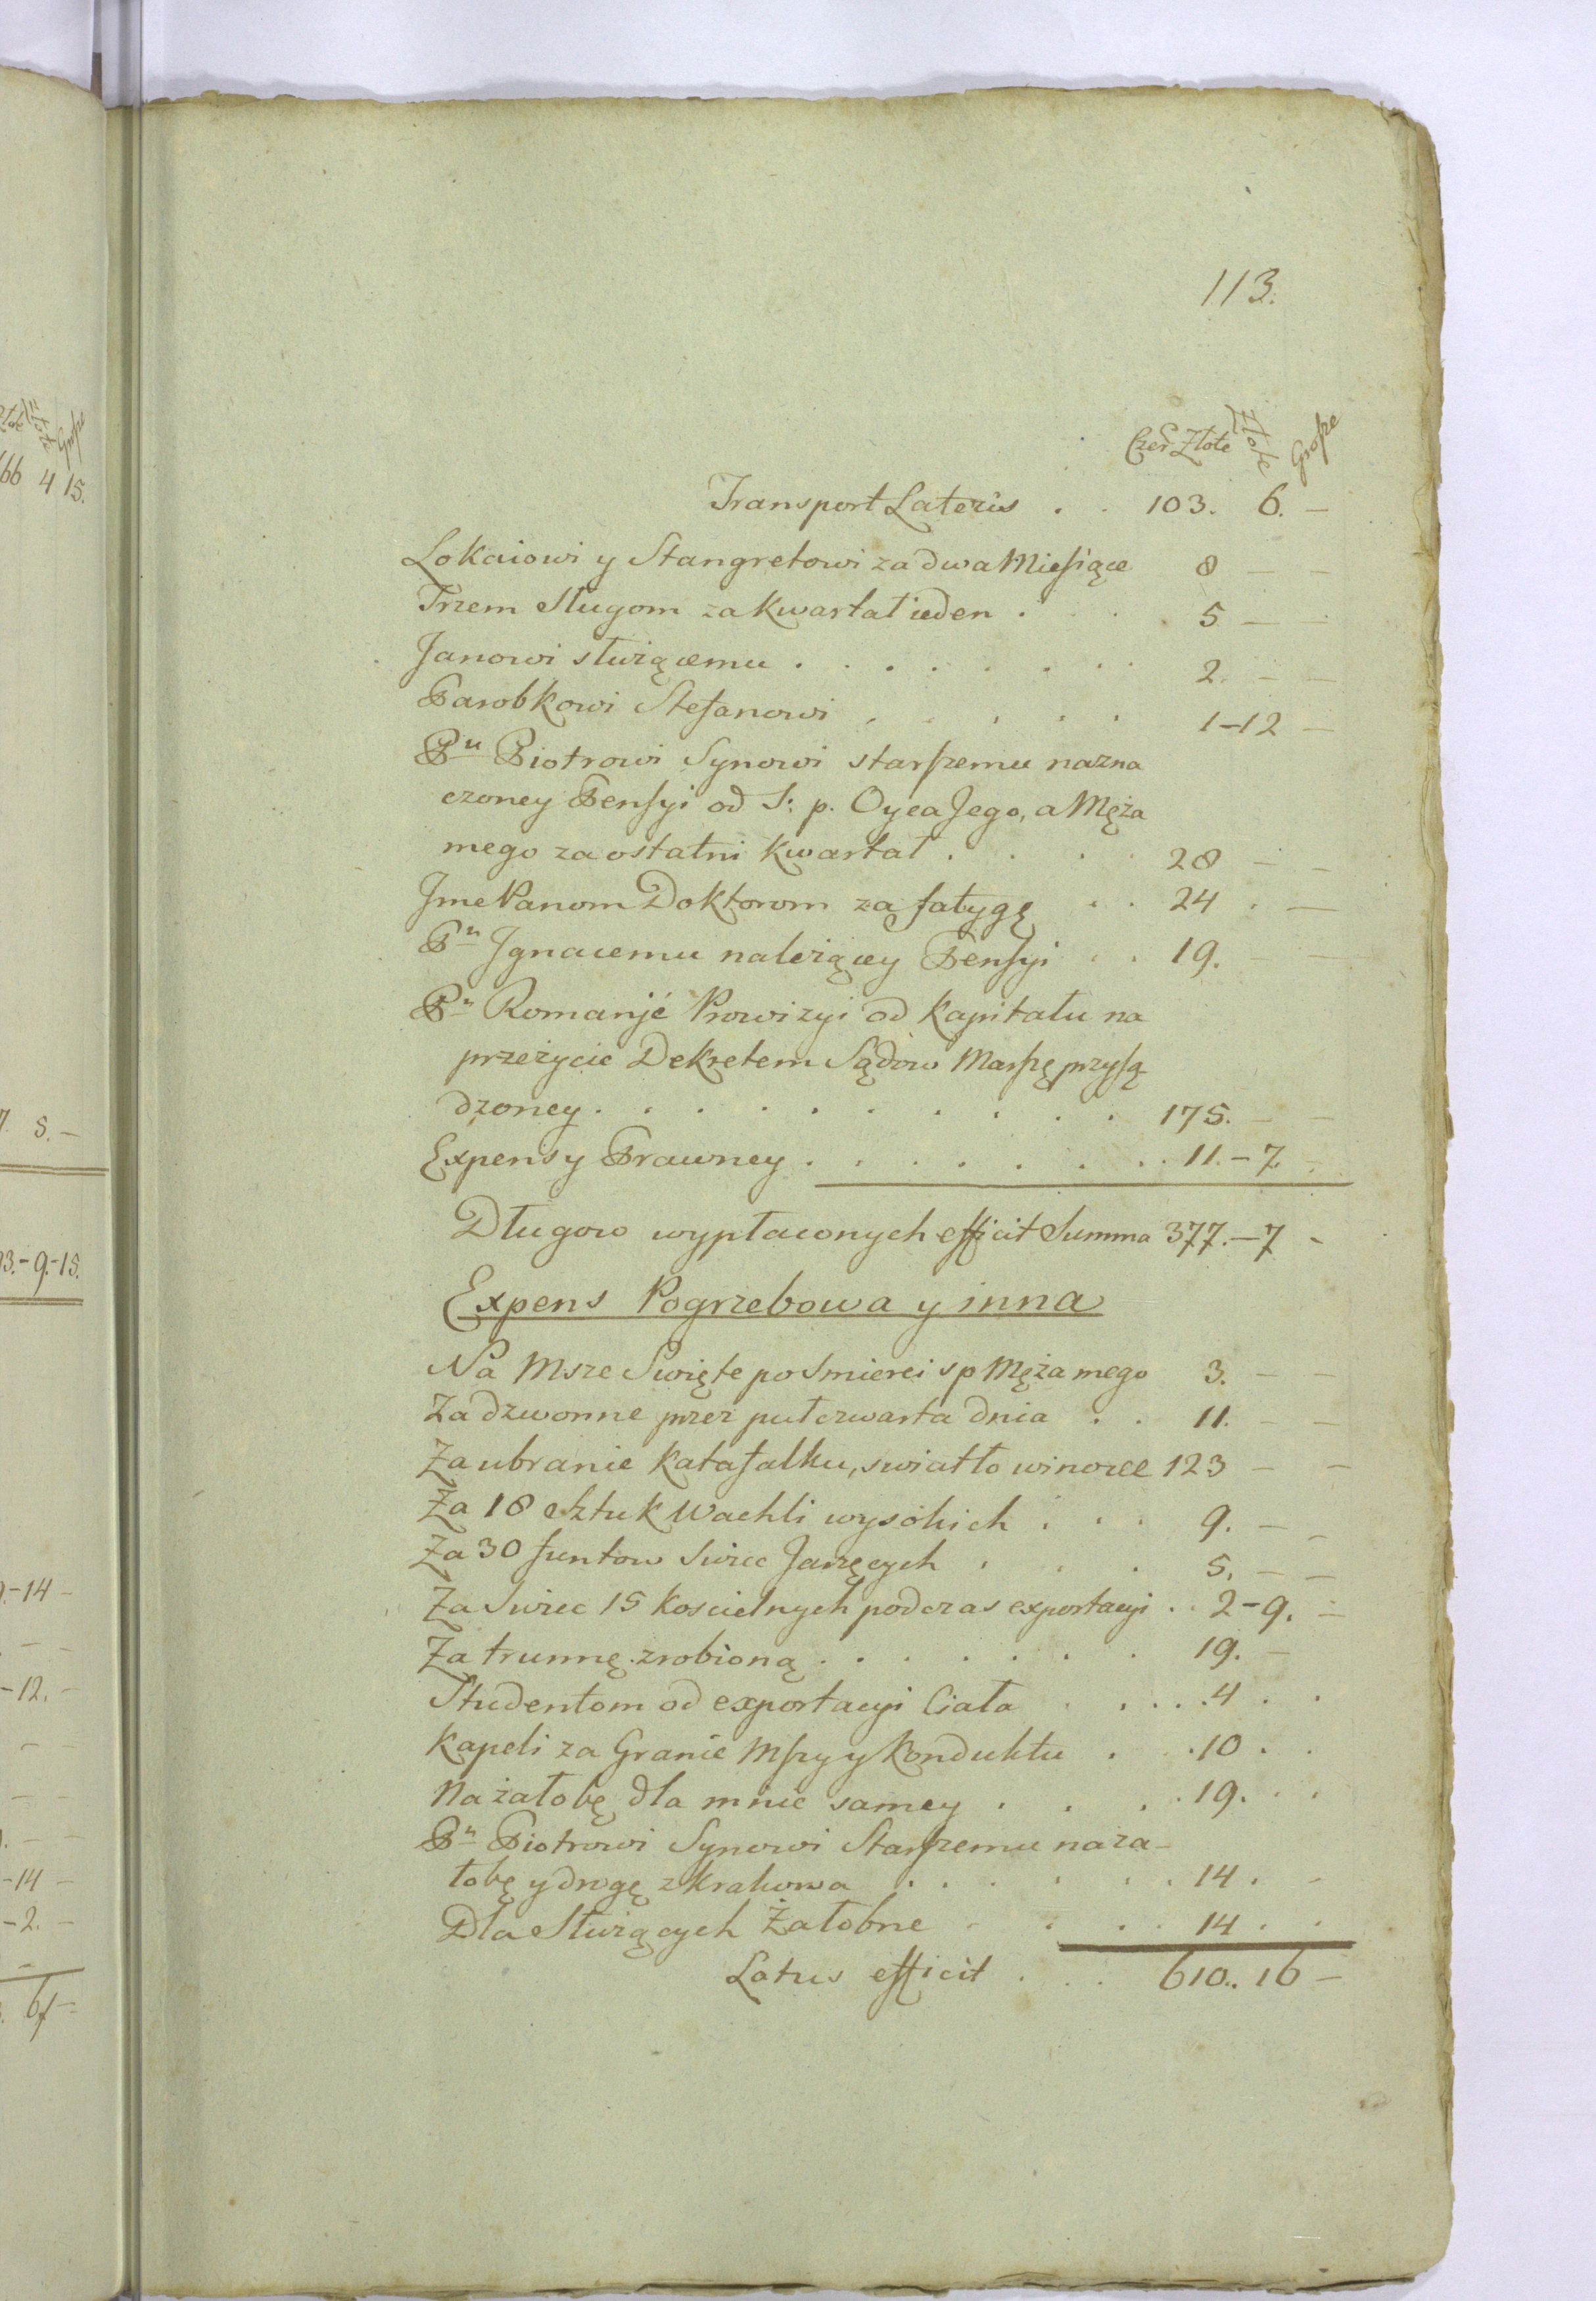 113.
Czer Złote Złote Grosze
Transport Lateris . . 103. 6. —
166 4 15.
Lokaiowi y Stangretowi za dwa Miesiące 8 — —
Trzem Sługom za kwartał ieden . . . 5 — —
Janowi służącemu . . . . . . . 2. — —
Parobkowi Stefanowi . . . . . 1—12 —
Pu Piotrowi Synowi starszemu nazna
czoney Pensyi od S: p. Oyca Jego, a Męża
mego za ostatni kwartał . . . . 28 — —
Jme Panom Doktorom za fatygę . . 24 . —
Pu Jgnacemu należącey Pensyi . . 19. — —
Pu Romanje Prowizyi od Kapitału na
przeżycie Dekretem Sądow Marszę przysą
dzoney . . . . . . . . . 175. — —
7 5. —
Expensy Prawney . . . . . . . 11. — 7. —
Długow wypłaconych efficit Summa 377. — 7 -
93.-9.-15.
Expens Pogrzebowa y inna
Na Msze Swięte po Smierci sp Męża mego 3. — —
Za dzwonne przez puł czwarta dnia . . 11. — —
Za ubranie katafalku, swiatło winowce 123 — —
Za 18 Sztuk Wachli wysokich . . . 9. — —
Za 30 funtow Swiec Jarzęcych . . . 5. — —
-14 -
Za Swiec 15 koscielnych podczas exportacyi . . 2-9. —
Za trumnę zrobioną . . . . . . . 19. —
-12. -
Studentom od exportacyi Ciała . . . . 4 . .
Kapeli za Granie Mszy y Konduktu . . 10 . .
Na żałobę dla mnie samey . . . . 19. . .
Pu Piotrowi Synowi Starszemu na ża-
-14 -
łobę y drogę z Krakowa . . . . . . 14 . -
-2. -
Dla Służących Żałobne - . . . 14 . .
Latus efficit . . . 610.. 16 —
6 —